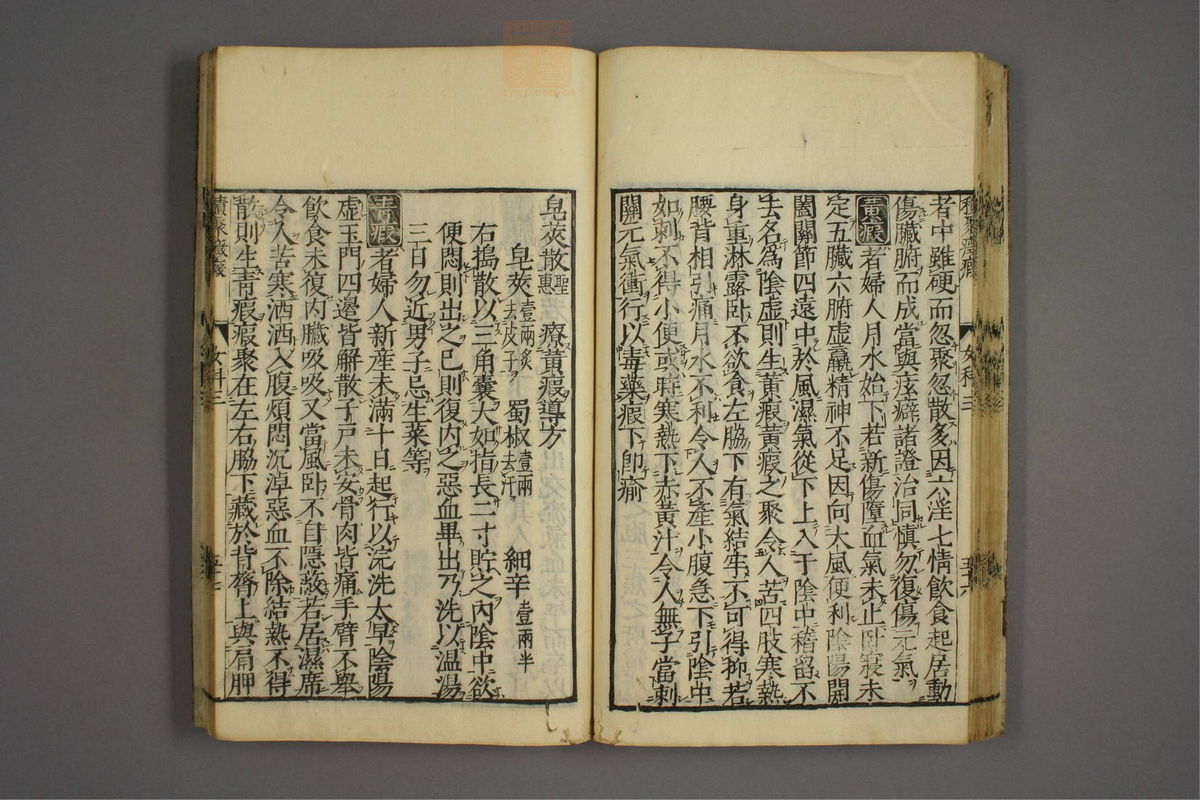 者中雖硬而忽聚忽散多因六淫七情飲食起居動
傷臟腑而成當與痃癖諸證治同慎勿復傷元氣
黃瘕者婦人月水始下若新傷墮血氣未止臥寢未
定五臟六腑虛羸精神不足因向大風便利陰陽開
闔關節四遠中於風濕氣從下上入于陰中稽留不
去名爲陰虛則生黃瘕黃瘕之聚令人苦四肢寒熱
身重淋露臥不欲食左脇下有氣結牢不可得抑若
腰背相引痛月水不利令人不產小腹急下引陰中
如刺不得小便或時寒熱下赤黃汁令人無子當刺
關元氣衝行以毒藥瘕下卽瘉
女科三
皂莢散聖惠 療黃瘕導方
皂莢壹兩炙去皮子 蜀椒壹兩去汗 細辛壹兩半
右搗散以三角囊大如指長二寸貯之內陰中欲
便悶則出之已則復內之惡血畢出乃洗以溫湯
三日勿近男子忌生菜等
靑瘕者婦人新產未滿十日起行以浣洗太早陰陽
虛玉門四邊皆解散子戶未安骨肉皆痛手臂不舉
飲食未復內臟吸吸又當風臥不自隱蔽若居濕席
令人苦寒洒洒入腹煩悶沉淖惡血不除結熱不得
散則生靑瘕瘕聚在左右脇下藏於背膂上與肩胛
女科三